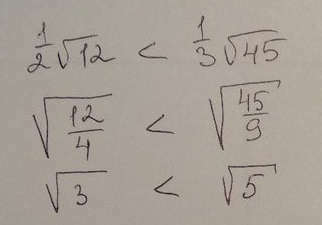 1/2 √12 < 1/3 √45
√(12/4) < √(45/9)
√3 < √5